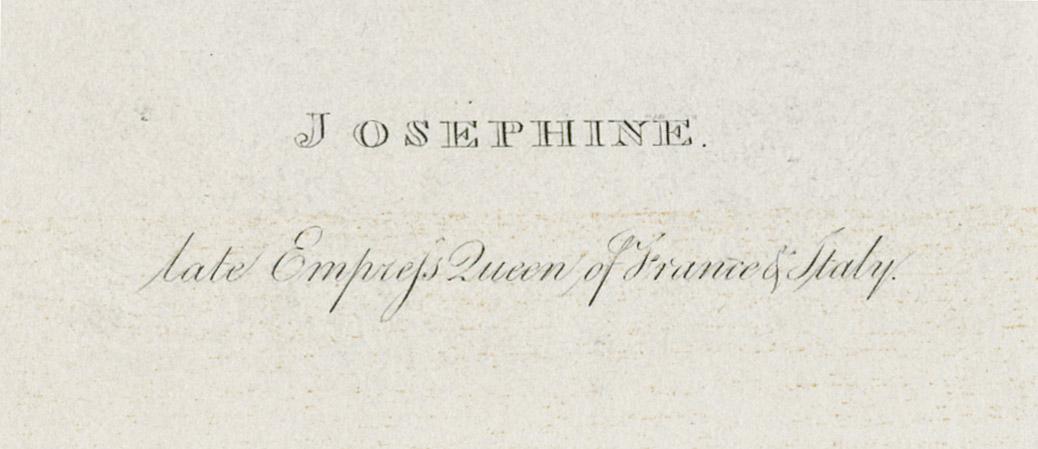 JOSEPHINE.
late Empreſs Queen of France & Italy.